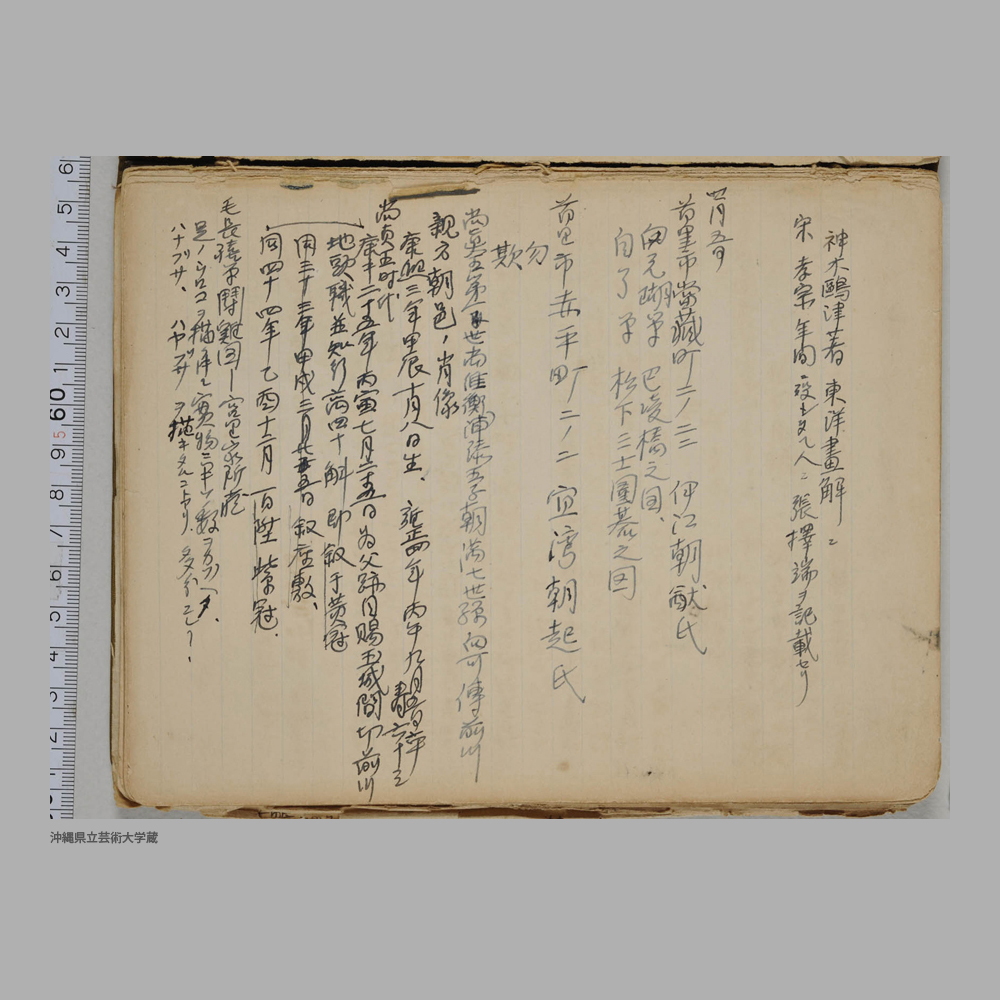 神木鷗津著 東洋畫解ニ
宋 孝宗年間 設セタル人ニ張擇端ヲ記載セリ
廿一月五日
首里市當藏町二ノ二二 伊江朝猷氏
向元瑚筆 巴陵橋之図、
自了筆 松下三士圍碁之図
首里市赤平町二ノ二 宜灣朝起氏
欺 勿
尚真王第 世尚維衡浦添王子朝満七世孫向可傳前川
親方朝邑ノ肖像
康熙三年甲辰十月八日生、雍正四年丙午九月五日卒 壽六十三
尚貞王時代
康熙二十五年丙寅七月二十五日為父跡目賜玉城間切前川
地頭職並知行高四十斛 即叙于黄冠
同三十三年甲戌二月 五日叙座敷、
同四十四年乙酉十二月一日陞紫冠.
毛長禧筆闘雞図一 宮里家所蔵
足ノウロコヲ描クニ 實物ニ ヅ数ヲカゾヘタ.
ハナブサ、ハヤブサヲ描キタルコトアリ. 多分 ー.
沖縄県立芸術大学蔵